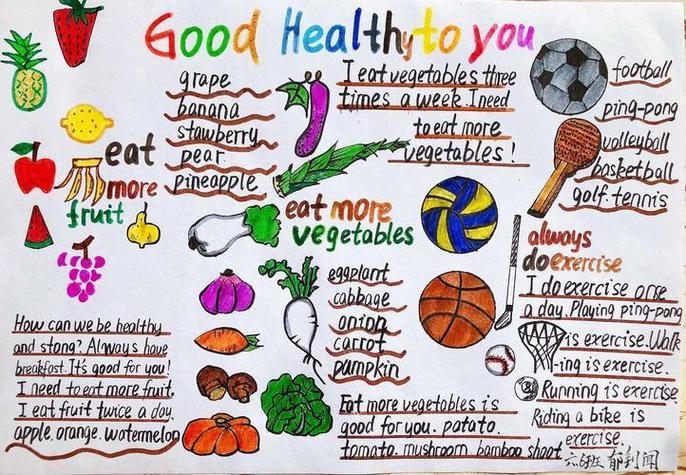 Good Healthy to you
grape
banana
stawberry
pear
pineapple
eat
more
fruit
I eat vegetables three
times a week. I need
to eat more
vegetables!
eat more
vegetables
eggplant
cabbage
onion
carrot
pampkin
football
ping-pong
volleyball
basketball
golf. tennis
always
do exercise
I do exercise onse
a day. Playing ping-pong
is exercise. Walk
-ing is exercise.
Running is exercise.
Riding a bike is
exercise.
How can we be healthy
and stong? Always have
breakfast. It's good for you!
I need to eat more fruit.
I eat fruit twice a day.
apple. orange. watermelon
Eat more vegetables is
good for you. patato.
tomato. mushroom. bamboo shoot
六6班